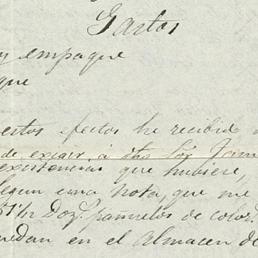 Gastos
y empaque
que
estos efectos he recibido
de exigir, á otro
existencias que hubiere,
segun una nota, que me
51½ Doz.s pañuelos de color
quedan en el Almacen de